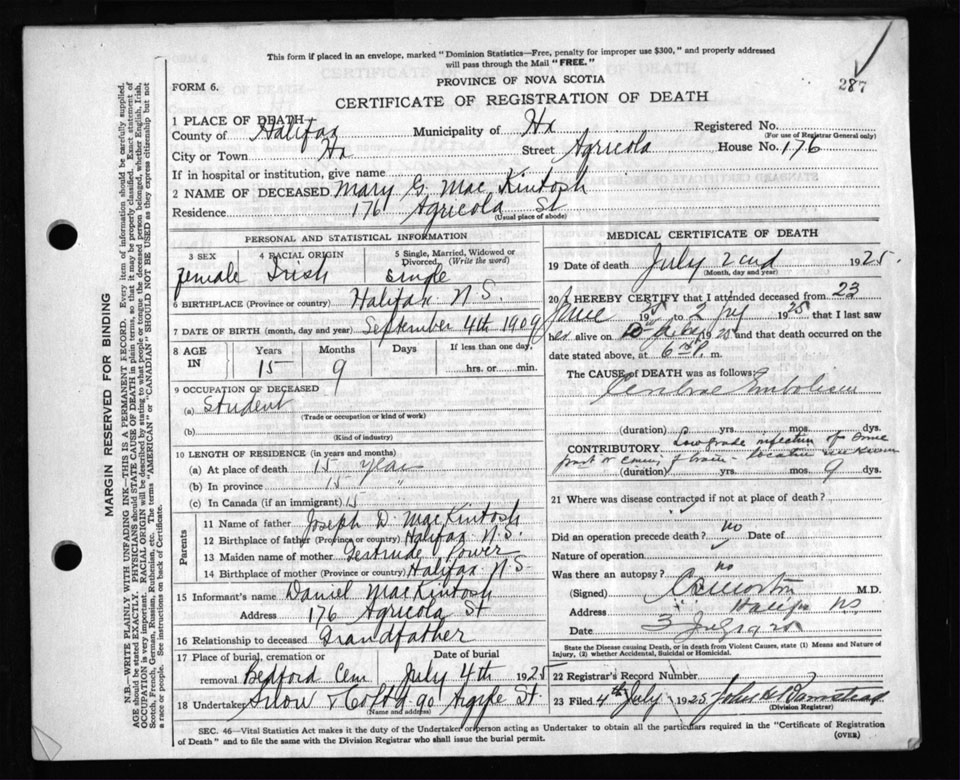 This form if placed in an envelope, marked "Dominion Statistics—Free, penalty for improper use $300," and properly addressed
will pass through the Mail "FREE."
287
PROVINCE OF NOVA SCOTIA
FORM 6.
CERTIFICATE OF REGISTRATION OF DEATH
1 PLACE OF DEATH
County of Halifax Municipality of Hx Registered No.
(For use of Registrar General only)
City or Town Hx Street Agricola House No. 176
If in hospital or institution, give name
2 NAME OF DECEASED Mary G. MacKintosh
Residence 176 Agricola St
(Usual place of abode)
PERSONAL AND STATISTICAL INFORMATION
3 SEX 4 RACIAL ORIGIN 5 Single, Married, Widowed or
Divorced (Write the word)
female Irish single
6 BIRTHPLACE (Province or country) Halifax N.S.
7 DATE OF BIRTH (month, day and year) September 4th 1909
8 AGE IN Years Months Days If less than one day,
15 9 hrs. or min.
9 OCCUPATION OF DECEASED
(a) Student
(Trade or occupation or kind of work)
(b)
(Kind of industry)
10 LENGTH OF RESIDENCE (in years and months)
(a) At place of death 15 years
(b) In province 15 "
(c) In Canada (if an immigrant) 15
Parents
11 Name of father Joseph D. MacKintosh
12 Birthplace of father (Province or country) Halifax N.S.
13 Maiden name of mother Gertrude Power
14 Birthplace of mother (Province or country) Halifax N.S.
15 Informant's name Daniel MacKintosh
Address 176 Agricola St
16 Relationship to deceased Grandfather
17 Place of burial, cremation or Date of burial
removal Bedford Cem July 4th 1925
18 Undertaker Snow & Co Ltd 90 Argyle St.
(Name and address)
MEDICAL CERTIFICATE OF DEATH
19 Date of death July 2nd 1925.
(Month, day and year)
20 I HEREBY CERTIFY that I attended deceased from 23
June 1925 to 2 July 1925 that I last saw
her alive on July 1925 and that death occurred on the
date stated above, at 6 P. m.
The CAUSE of DEATH was as follows:
Cerebral Embolism
(duration) yrs. mos. dys.
CONTRIBUTORY Low grade infection of some
part of brain - location unknown
(duration) yrs. mos. 9 dys.
21 Where was disease contracted if not at place of death?
Did an operation precede death? no Date of
Nature of operation
Was there an autopsy? no
(Signed) M.D.
Address Halifax NS
Date 3 July 1925
State the Disease causing Death, or in death from Violent Causes, state (1) Means and Nature of
Injury, (2) whether Accidental, Suicidal or Homicidal.
22 Registrar's Record Number
23 Filed 4th July 1925 John H Barnstead
(Division Registrar)
SEC. 46—Vital Statistics Act makes it the duty of the Undertaker or person acting as Undertaker to obtain all the particulars required in the "Certificate of Registration
of Death" and to file the same with the Division Registrar who shall issue the burial permit.
(OVER)
MARGIN RESERVED FOR BINDING
N.B.—WRITE PLAINLY WITH UNFADING INK—THIS IS A PERMANENT RECORD. Every item of information should be carefully supplied.
AGE should be stated EXACTLY. PHYSICIANS should STATE CAUSE OF DEATH in plain terms, so that it may be properly classified. Exact statement of
OCCUPATION is very important. RACIAL ORIGIN will be described by stating to what people or tongue the deceased person belonged, whether English, Irish,
Scotch, French, German, Russian, Ruthenian, etc. The terms "AMERICAN" or "CANADIAN" SHOULD NOT BE USED as they express citizenship but not
a race or people. See instructions on back of Certificate.